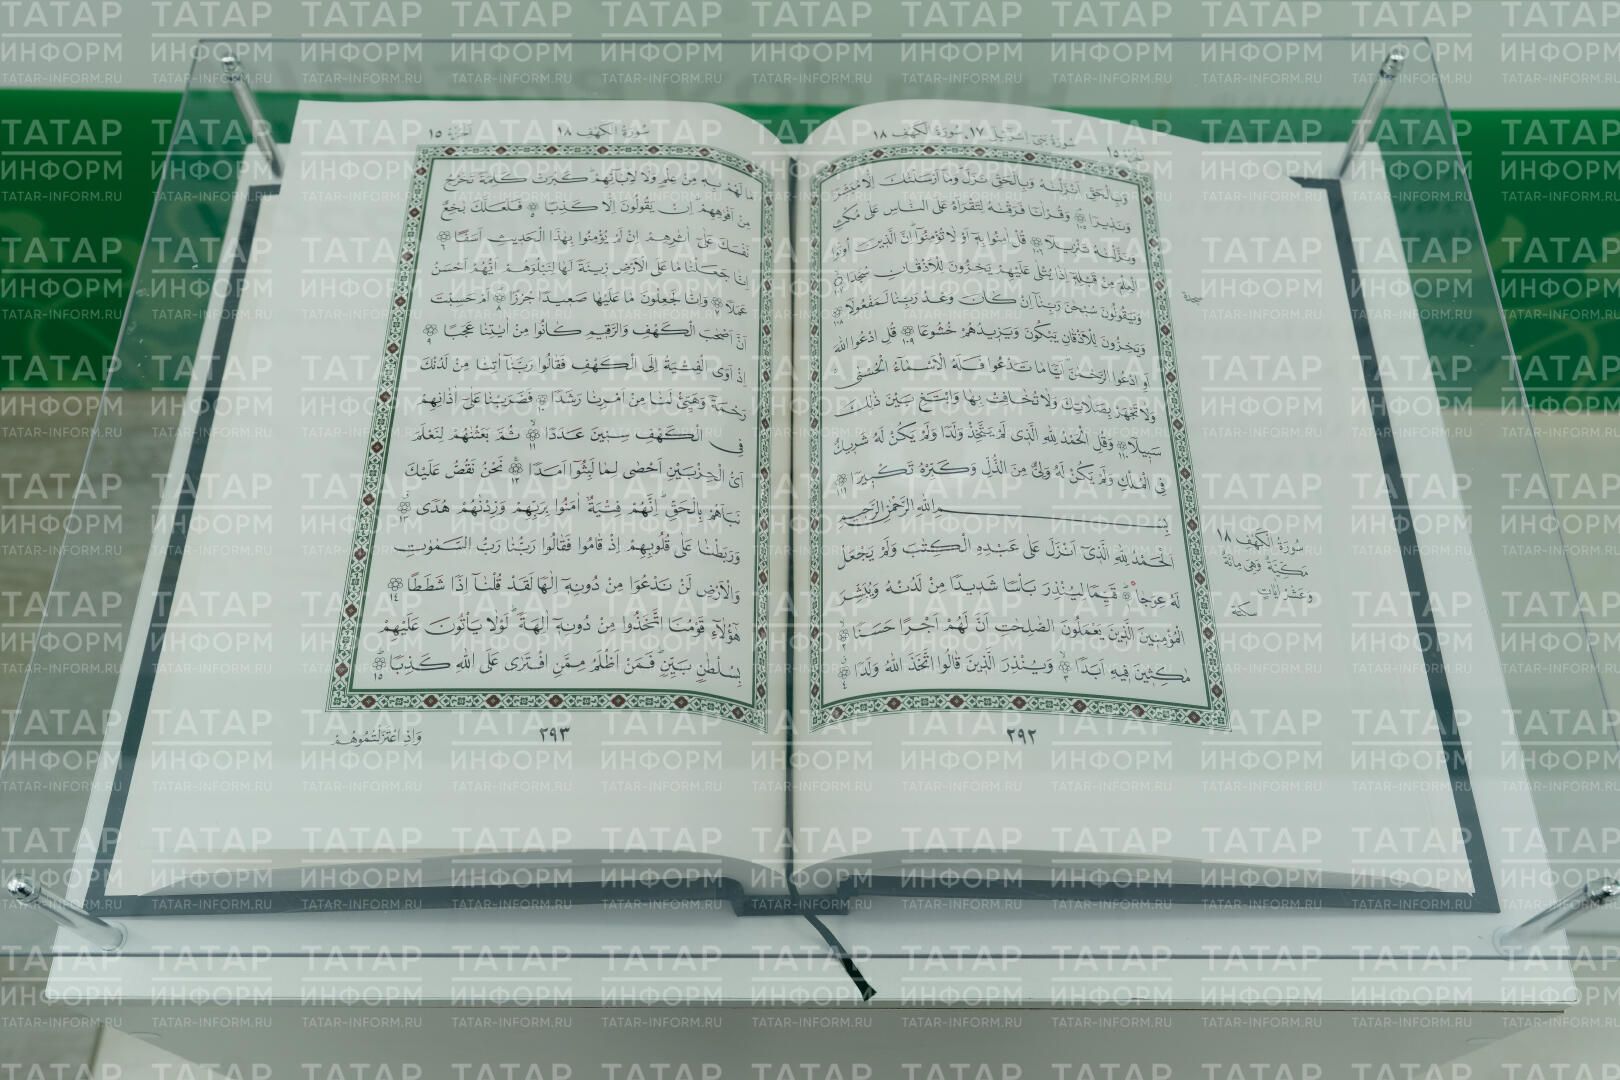 الجزء ١٥
سورة بني اسرائيل ١٧، سورة الكهف ١٨
وَبِالْحَقِّ اَنْزَلْنٰهُ وَبِالْحَقِّ نَزَلَ وَمَا اَرْسَلْنٰكَ اِلَّا مُبَشِّرًا
وَنَذِيرًا ١٠٥ وَقُرْاٰنًا فَرَقْنٰهُ لِتَقْرَاَهُ عَلَى النَّاسِ عَلٰى مُكْثٍ
وَنَزَّلْنٰهُ تَنْزِيلًا ١٠٦ قُلْ اٰمِنُوا بِهٖٓ اَوْ لَا تُؤْمِنُوا اِنَّ الَّذِينَ اُوتُوا
الْعِلْمَ مِنْ قَبْلِهٖٓ اِذَا يُتْلٰى عَلَيْهِمْ يَخِرُّونَ لِلْاَذْقَانِ سُجَّدًا ١٠٧
سجدة
وَيَقُولُونَ سُبْحٰنَ رَبِّنَآ اِنْ كَانَ وَعْدُ رَبِّنَا لَمَفْعُولًا ١٠٨
وَيَخِرُّونَ لِلْاَذْقَانِ يَبْكُونَ وَيَزِيدُهُمْ خُشُوعًا ١٠٩ قُلِ ادْعُوا اللّٰهَ
اَوِ ادْعُوا الرَّحْمٰنَ اَيًّا مَا تَدْعُوا فَلَهُ الْاَسْمَآءُ الْحُسْنٰى
وَلَا تَجْهَرْ بِصَلَاتِكَ وَلَا تُخَافِتْ بِهَا وَابْتَغِ بَيْنَ ذٰلِكَ
سَبِيلًا ١١٠ وَقُلِ الْحَمْدُ لِلّٰهِ الَّذِى لَمْ يَتَّخِذْ وَلَدًا وَلَمْ يَكُنْ لَهُ شَرِيكٌ
فِى الْمُلْكِ وَلَمْ يَكُنْ لَهُ وَلِىٌّ مِنَ الذُّلِّ وَكَبِّرْهُ تَكْبِيرًا ١١١
بِسْمِ اللّٰهِ الرَّحْمٰنِ الرَّحِيمِ
سُورَةُ الْكَهْفِ ١٨
مَكِّيَّةٌ وَهِىَ مِائَةٌ
وَعَشْرُ اٰيَاتٍ
اَلْحَمْدُ لِلّٰهِ الَّذِىٓ اَنْزَلَ عَلٰى عَبْدِهِ الْكِتٰبَ وَلَمْ يَجْعَلْ
لَهُ عِوَجًا ١ قَيِّمًا لِيُنْذِرَ بَاْسًا شَدِيدًا مِنْ لَدُنْهُ وَيُبَشِّرَ
سكتة
الْمُؤْمِنِينَ الَّذِينَ يَعْمَلُونَ الصّٰلِحٰتِ اَنَّ لَهُمْ اَجْرًا حَسَنًا ٢
مٰكِثِينَ فِيهِ اَبَدًا ٣ وَيُنْذِرَ الَّذِينَ قَالُوا اتَّخَذَ اللّٰهُ وَلَدًا ٤
٢٩٢
سورة الكهف ١٨
الجزء ١٥
مَا لَهُمْ بِهٖ مِنْ عِلْمٍ وَلَا لِاٰبَآئِهِمْ كَبُرَتْ كَلِمَةً تَخْرُجُ
مِنْ اَفْوَاهِهِمْ اِنْ يَقُولُونَ اِلَّا كَذِبًا ٥ فَلَعَلَّكَ بَاخِعٌ
نَفْسَكَ عَلٰٓى اٰثَارِهِمْ اِنْ لَمْ يُؤْمِنُوا بِهٰذَا الْحَدِيثِ اَسَفًا ٦
اِنَّا جَعَلْنَا مَا عَلَى الْاَرْضِ زِينَةً لَهَا لِنَبْلُوَهُمْ اَيُّهُمْ اَحْسَنُ
عَمَلًا ٧ وَاِنَّا لَجَاعِلُونَ مَا عَلَيْهَا صَعِيدًا جُرُزًا ٨ اَمْ حَسِبْتَ
اَنَّ اَصْحٰبَ الْكَهْفِ وَالرَّقِيمِ كَانُوا مِنْ اٰيٰتِنَا عَجَبًا ٩
اِذْ اَوَى الْفِتْيَةُ اِلَى الْكَهْفِ فَقَالُوا رَبَّنَآ اٰتِنَا مِنْ لَدُنْكَ
رَحْمَةً وَهَيِّئْ لَنَا مِنْ اَمْرِنَا رَشَدًا ١٠ فَضَرَبْنَا عَلٰٓى اٰذَانِهِمْ
فِى الْكَهْفِ سِنِينَ عَدَدًا ١١ ثُمَّ بَعَثْنٰهُمْ لِنَعْلَمَ
اَىُّ الْحِزْبَيْنِ اَحْصٰى لِمَا لَبِثُوٓا اَمَدًا ١٢ نَحْنُ نَقُصُّ عَلَيْكَ
نَبَاَهُمْ بِالْحَقِّ اِنَّهُمْ فِتْيَةٌ اٰمَنُوا بِرَبِّهِمْ وَزِدْنٰهُمْ هُدًى ١٣
وَرَبَطْنَا عَلٰى قُلُوبِهِمْ اِذْ قَامُوا فَقَالُوا رَبُّنَا رَبُّ السَّمٰوٰتِ
وَالْاَرْضِ لَنْ نَدْعُوَا مِنْ دُونِهٖٓ اِلٰهًا لَقَدْ قُلْنَآ اِذًا شَطَطًا ١٤
هٰٓؤُلَآءِ قَوْمُنَا اتَّخَذُوا مِنْ دُونِهٖٓ اٰلِهَةً لَوْلَا يَاْتُونَ عَلَيْهِمْ
بِسُلْطٰنٍ بَيِّنٍ فَمَنْ اَظْلَمُ مِمَّنِ افْتَرٰى عَلَى اللّٰهِ كَذِبًا ١٥
٢٩٣
وَاِذِ اعْتَزَلْتُمُوهُمْ
ТАТАР
ИНФОРМ
TATAR-INFORM.RU